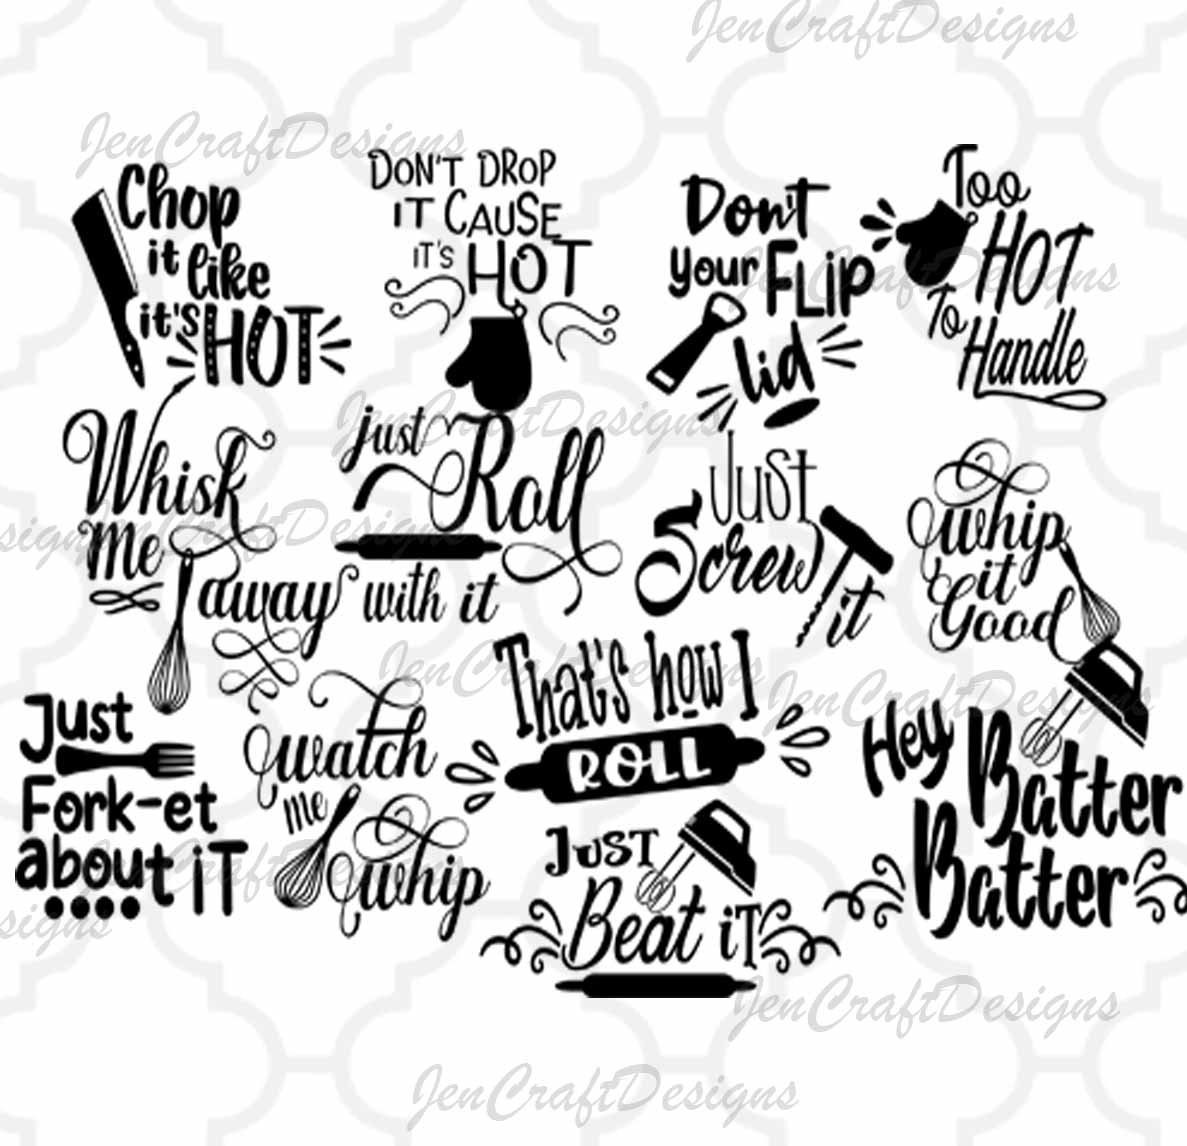 JenCraftDesigns
JenCraftDesigns
Chop
it like
it's HOT
DON'T DROP
IT CAUSE
IT'S HOT
Don't
your FLIP
lid
JenCraftDesigns
Too
HOT
To
Handle
Whisk
Me
away
JenCraftDesigns
just Roll
with it
JenCraftDesigns
Just
Screw
it
whip
it
Good
JenCraftDesigns
JenCraftDesigns
Just
Fork-et
about iT
JenCraftDesigns
watch
me
whip
That's how I
ROLL
Hey Batter
Batter
JUST
Beat iT
JenCraftDesigns
JenCraftDesigns